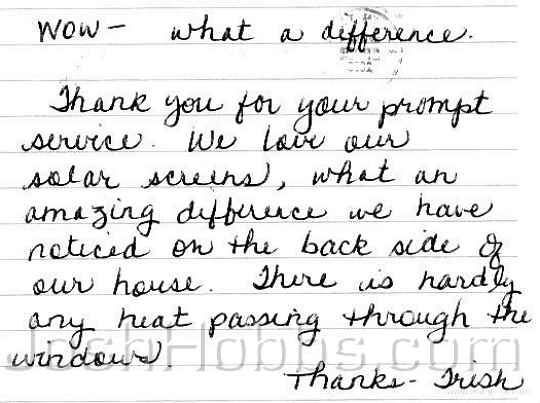 WOW - what a difference.
Thank you for your prompt
service. We love our
solar screens, what an
amazing difference we have
noticed on the back side of
our house. There is hardly
any heat passing through the
windows.
JoshHobbs.com
Thanks - Trish